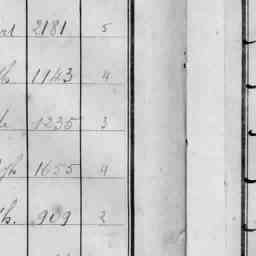 2181 5
1143 4
1235 3
1655 4
909 2